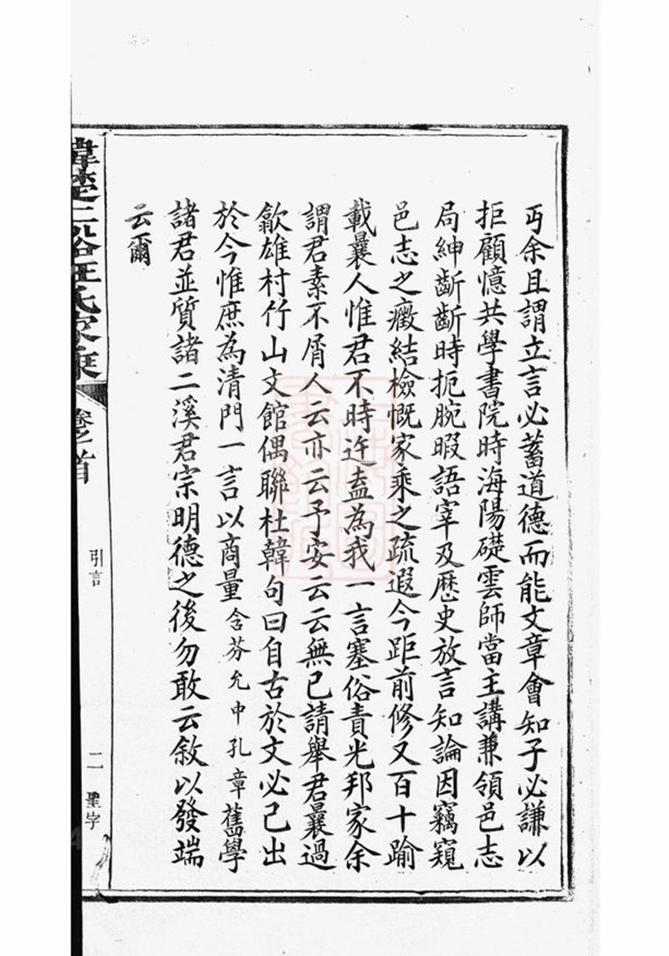 丐余且謂立言必蓄道德而能文章會知子必謙以
拒顧憶共學書院時海陽礎雲師當主講兼領邑志
局紳齗齗時扼腕暇語宰及歷史放言知論因竊窺
邑志之癥結檢慨家乘之疏遐今距前修又百十踰
載曩人惟君不時迕盍為我一言塞俗責光邦家余
謂君素不屑人云亦云予安云云無已請舉君曩過
歙雄村竹山文館偶聯杜韓句曰自古於文必己出
於今惟庶為清門一言以商量含芬允中孔章舊學
諸君並質諸二溪君宗明德之後勿敢云敘以發端
云爾
氏家乘 卷之首 引言 二 聖字